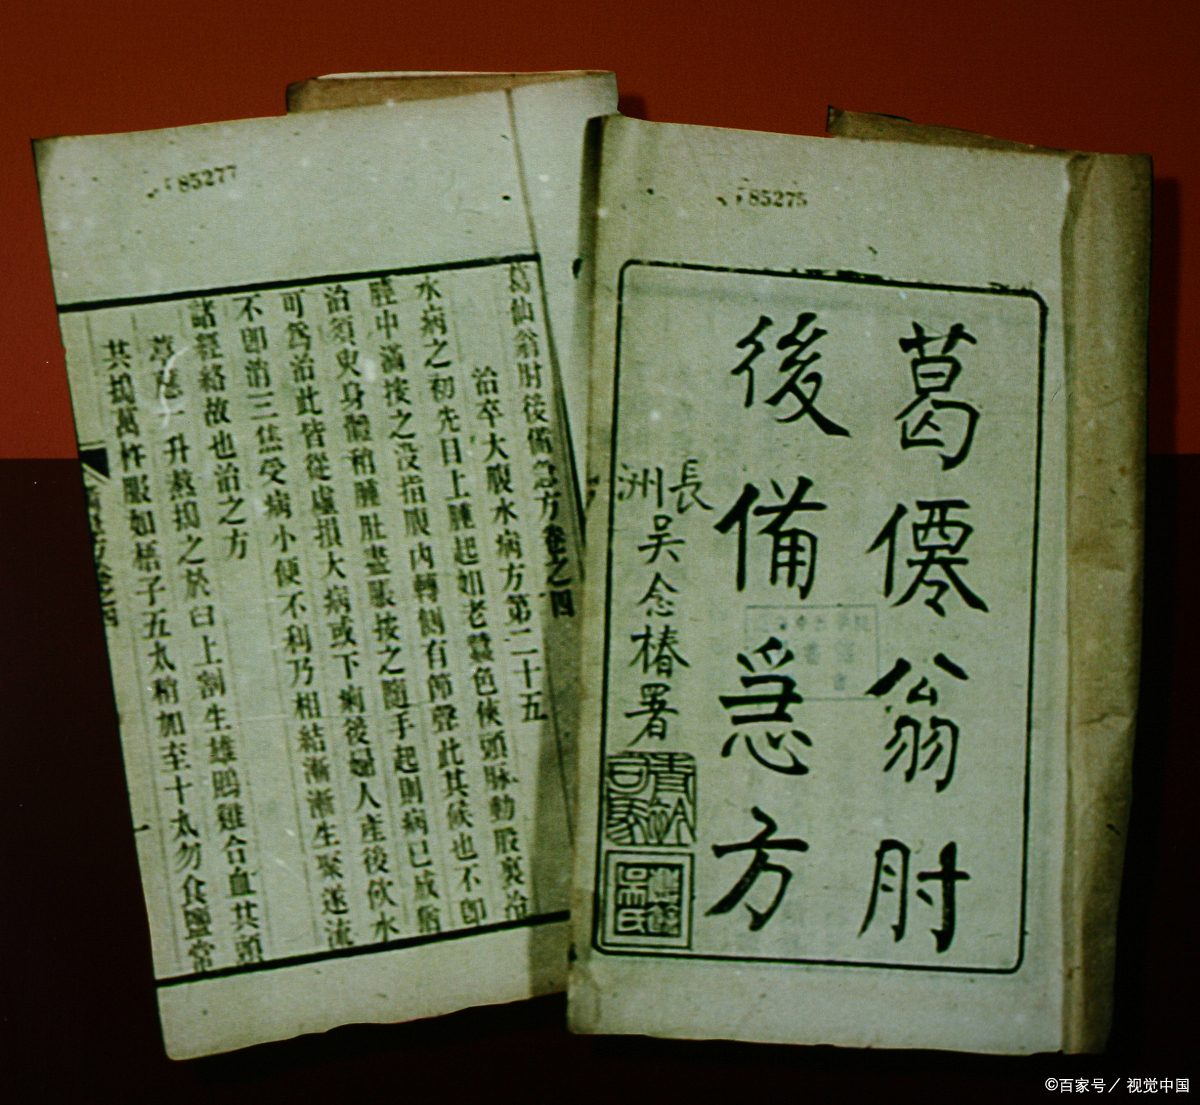 85277
葛仙翁肘後備急方卷之四
治卒大腹水病方第二十五
水病之初先目上腫起如老蠶色俠頭脉動股裏冷
脛中滿按之没指腹内轉側有節聲此其候也不即
治須臾身體稍腫肚盡脹按之隨手起則病已成猶
可爲治此皆從虚損大病或下痢後婦人産後飲水
不即消三焦受病小便不利乃相結漸漸生聚遂流
諸經絡故也治之方
葶藶一升熬搗之於臼上割生雄鵾雞合血共頭
共搗萬杵服如梧子五丸稍加至十丸勿食鹽常
85275
葛僊翁肘
後備急方
長洲吴念椿署
©百家号／视觉中国